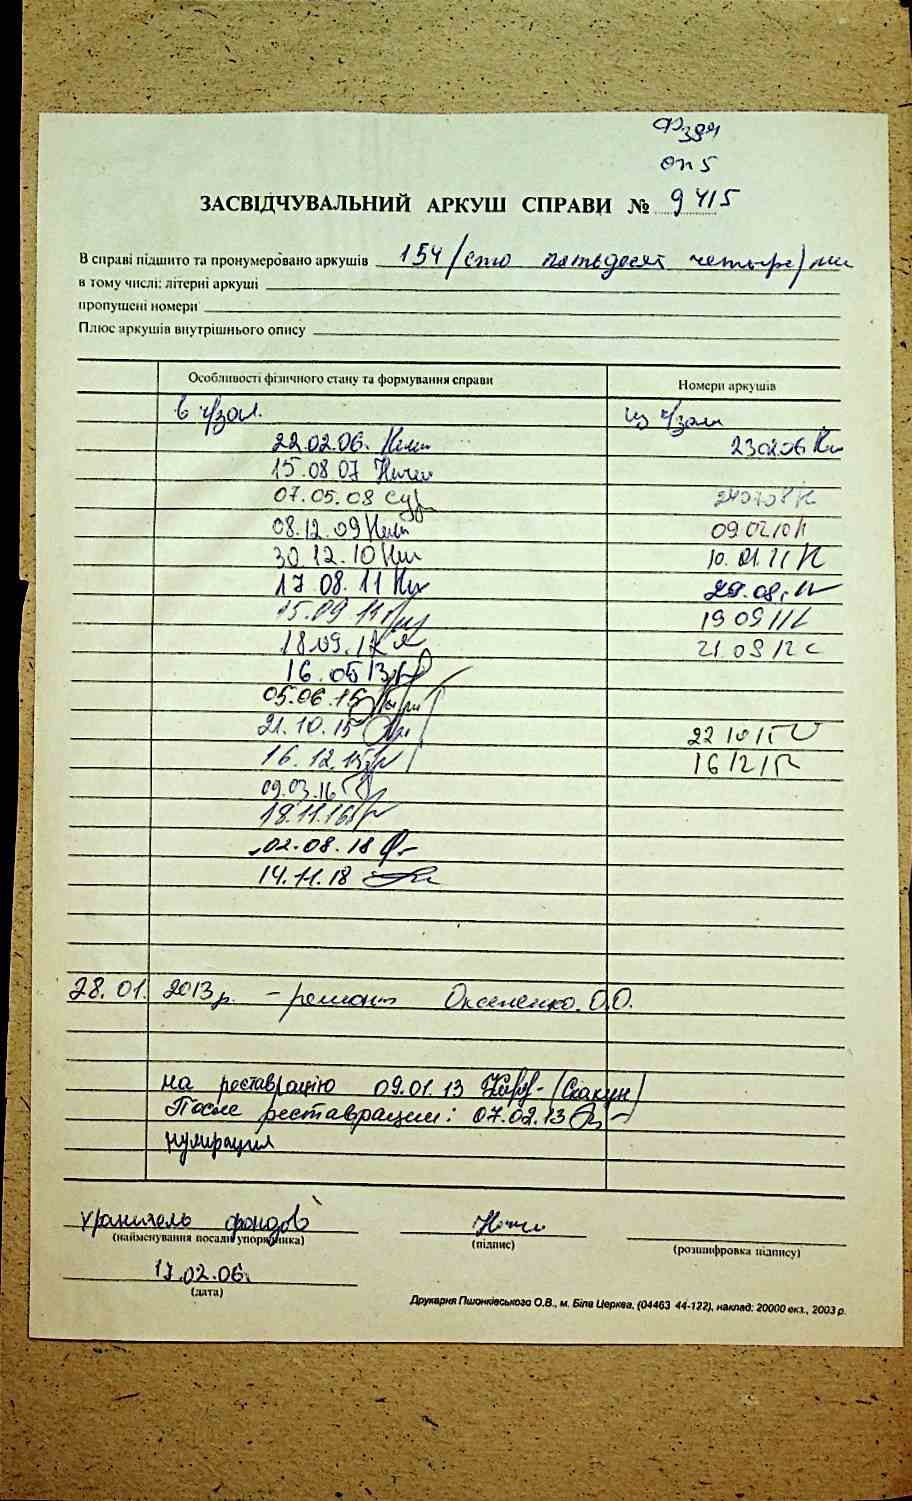 Ф.384
оп 5
ЗАСВІДЧУВАЛЬНИЙ АРКУШ СПРАВИ № 9415
В справі підшито та пронумеровано аркушів 154 /сто пятьдесят четыре/
в тому числі: літерні аркуші
пропущені номери
Плюс аркушів внутрішнього опису
Особливості фізичного стану та формування справи Номери аркушів
в ч/зал. из ч/зала
22.02.06. 230206
15.08 07
07.05.08
08.12.09 09 02 10
30 12.10 10.01.11
17 08.11
15.09 11 19 09 11
18.09.12 21.09 12
16.05 13
05.06.15
21.10.15 22 10 15
16.12.15 16 12 15
09.03.16
18.11.16
02.08.18
14.11.18
28.01. 2013р. – ремонт О.О.
на реставрацію 09.01.13 (Скакун)
После реставрации: 07.02.13
нумерация
хранитель фондов
(найменування посади упорядника) (підпис) (розшифровка підпису)
17.02.06.
(дата)
Друкарня Пшонківського О.В., м. Біла Церква, (04463 44-122), наклад: 20000 екз., 2003 р.